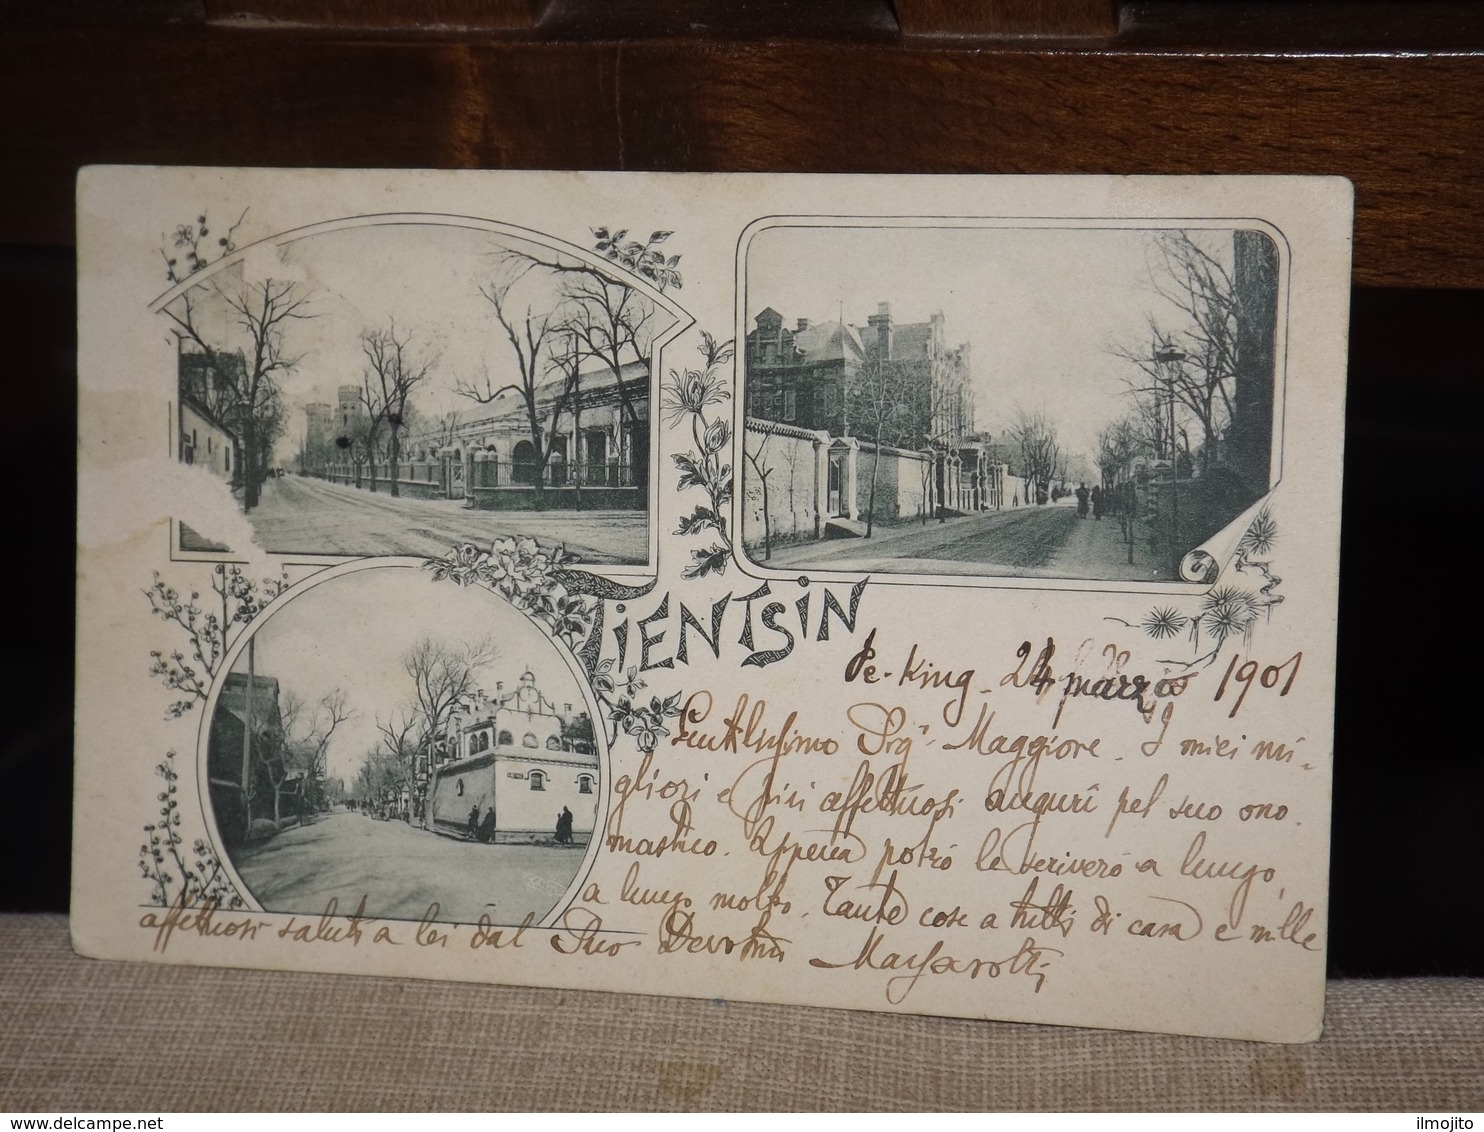 TIENTSIN
Pe-King - 24 marzo 1901
Gentilissimo Sigr Maggiore. I miei mi-
gliori e più affettuosi auguri pel suo ono
mastico. Appena potrò le scriverò a lungo,
a lungo molto. Tante cose a tutti di casa e mille
affettuosi saluti a lei dal Suo Devotmo
ilmojito